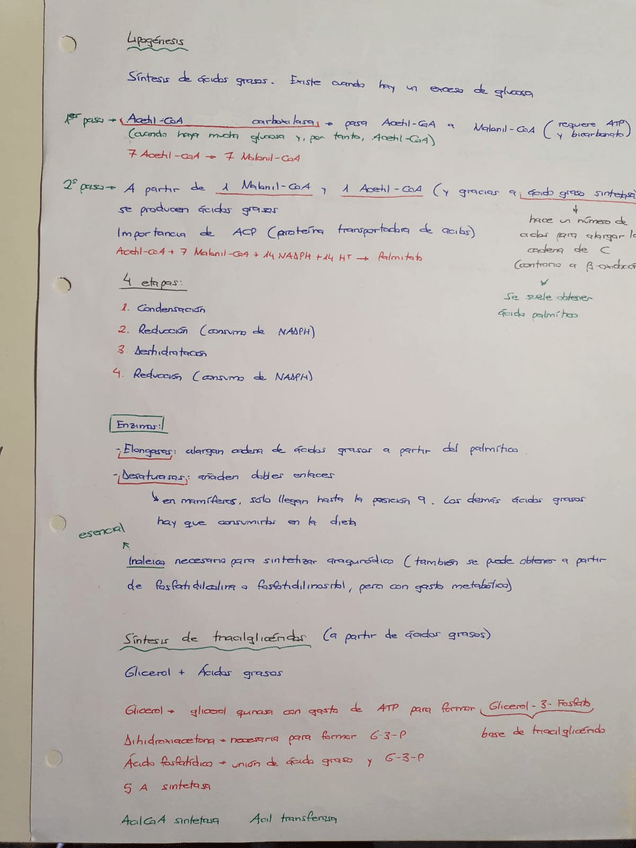 Lipogénesis
Síntesis de ácidos grasos. Existe cuando hay un exceso de glucosa
1er paso → Acetil-CoA carboxilasa → pasa Acetil-CoA a Malonil-CoA (requiere ATP y bicarbonato)
(cuando haya mucha glucosa y, por tanto, Acetil-CoA)
7 Acetil-CoA → 7 Malonil-CoA
2º paso → A partir de 1 Malonil-CoA y 1 Acetil-CoA (y gracias a ácido graso sintetasa
se producen ácidos grasos
Importancia de ACP (proteína transportadora de acilos)
Acetil-CoA + 7 Malonil-CoA + 14 NADPH + 14 H+ → Palmitato
↓
hace un número de
ciclos para alargar la
cadena de C
(contrario a β-oxidación
↓
Se suele obtener
ácido palmítico
4 etapas:
1. Condensación
2. Reducción (consumo de NADPH)
3 Deshidratación
4. Reducción (consumo de NADPH)
Enzimas:
- Elongasas: alargan cadena de ácidos grasos a partir del palmítico
- Desaturasas: añaden dobles enlaces
↳ en mamíferos, solo llegan hasta la posición 9. Los demás ácidos grasos
hay que consumirlos en la dieta
esencial
linoleico necesario para sintetizar araquidónico (también se puede obtener a partir
de fosfatidilcolina o fosfatidilinositol, pero con gasto metabólico)
Síntesis de triacilglicéridos (a partir de ácidos grasos)
Glicerol + Ácidos grasos
Glicerol → glicerol quinasa con gasto de ATP para formar Glicerol-3-Fosfato
base de triacilglicérido
Dihidroxiacetona → necesaria para formar G-3-P
Ácido fosfatídico → unión de ácido graso y G-3-P
5 A sintetasa
Acil CoA sintetasa Acil transferasa